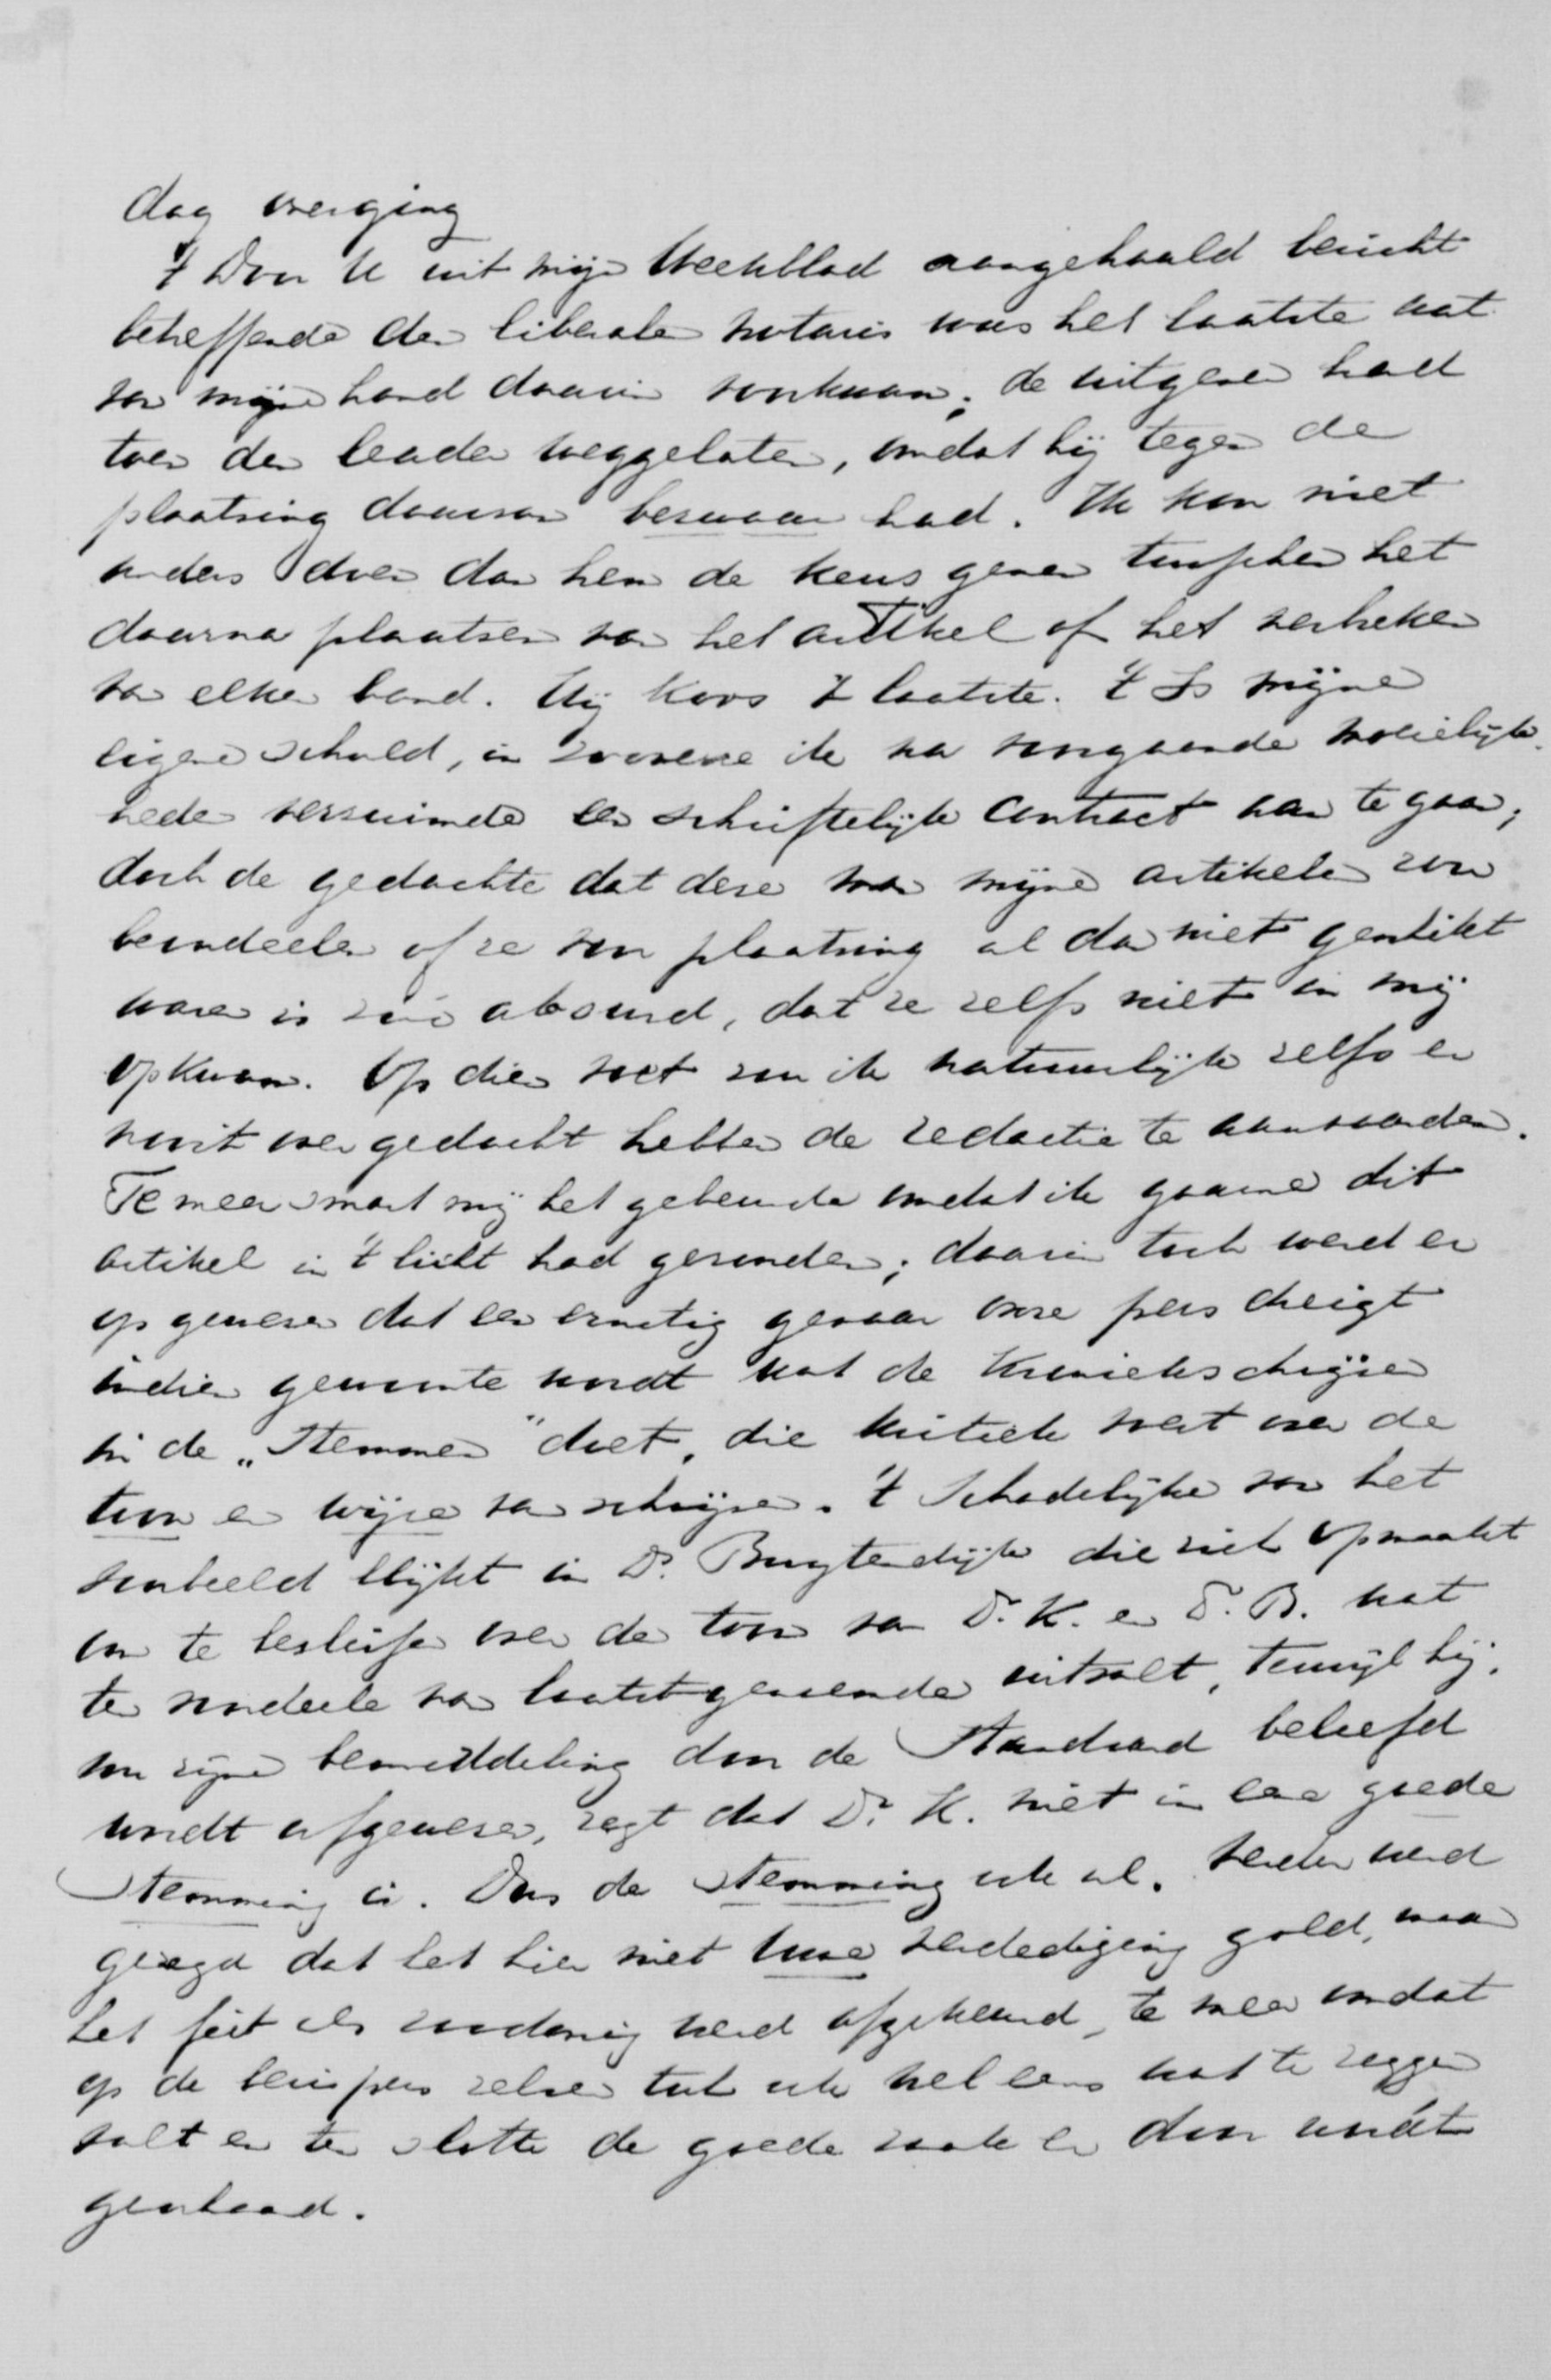 dag overging
't Door U uit mijn Weekblad aangehaald bericht
betreffende den liberalen notaris was het laatste wat
van mijne hand daarin voorkwam; de uitgever had
toen den leader weggelaten, omdat hij tegen de
plaatsing daarvan bezwaar had. Ik kon niet
anders doen dan hem de keus geven tusschen het
daarna plaatsen van het artikel of het verbreken
van elken band. Hij koos 't laatste. 't Is mijne
eigene schuld, in zooverre ik na voorgaande moeielijk-
heden verzuimde een schriftelijk contract aan te gaan;
doch de gedachte dat deze man mijne artikelen zou
beoordeelen of ze voor plaatsing al dan niet geschikt
waren is zóó absurd, dat ze zelfs niet in mij
opkwam. Op dien voet zou ik natuurlijk zelfs er
nooit over gedacht hebben de redactie te aanvaarden.
Te meer smart mij het gebeurde omdat ik gaarne dit
artikel in 't licht had gezonden; daarin toch werd er
op gewezen dat een ernstig gevaar onze pers dreigt
indien gewoonte wordt wat de Kroniekschrijver
in de „Stemmen" doet, die kritiek voert over de
toon en wijze van schrijven. 't Schadelijke van het
voorbeeld blijkt in Dr. Buytendijk die zich opmaakt
om te beslissen over de toon van Dr. K. en Dr. B. wat
ten voordeele van laatstgenoemde uitvalt, terwijl hij,
voor zijne bemiddeling door de Standaard beleefd
wordt afgewezen, zegt dat Dr. K. niet in eene goede
stemming is. Dus de stemming ook al. Verder werd
gezegd dat het hier niet Uwe verdediging gold, maar
het feit als zoodanig werd afgekeurd, te meer omdat
op de kruispers zelve toch ook wel eens wat te zeggen
valt en ten slotte de goede zaak er door wordt
geschaad.